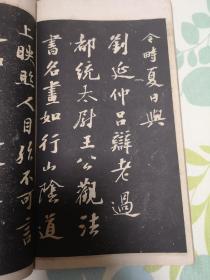 令時夏日與
劉延仲呂辯老過
都統太尉王公觀法
書名畫如行山陰道
上映人目殆不可言